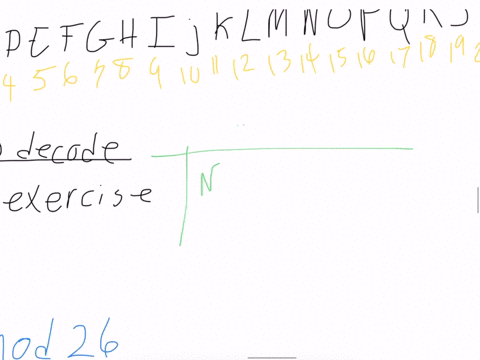 D E F G H I j K L M N O P Q R S
4 5 6 7 8 9 10 11 12 13 14 15 16 17 18 19
decode
exercise
N
mod 26